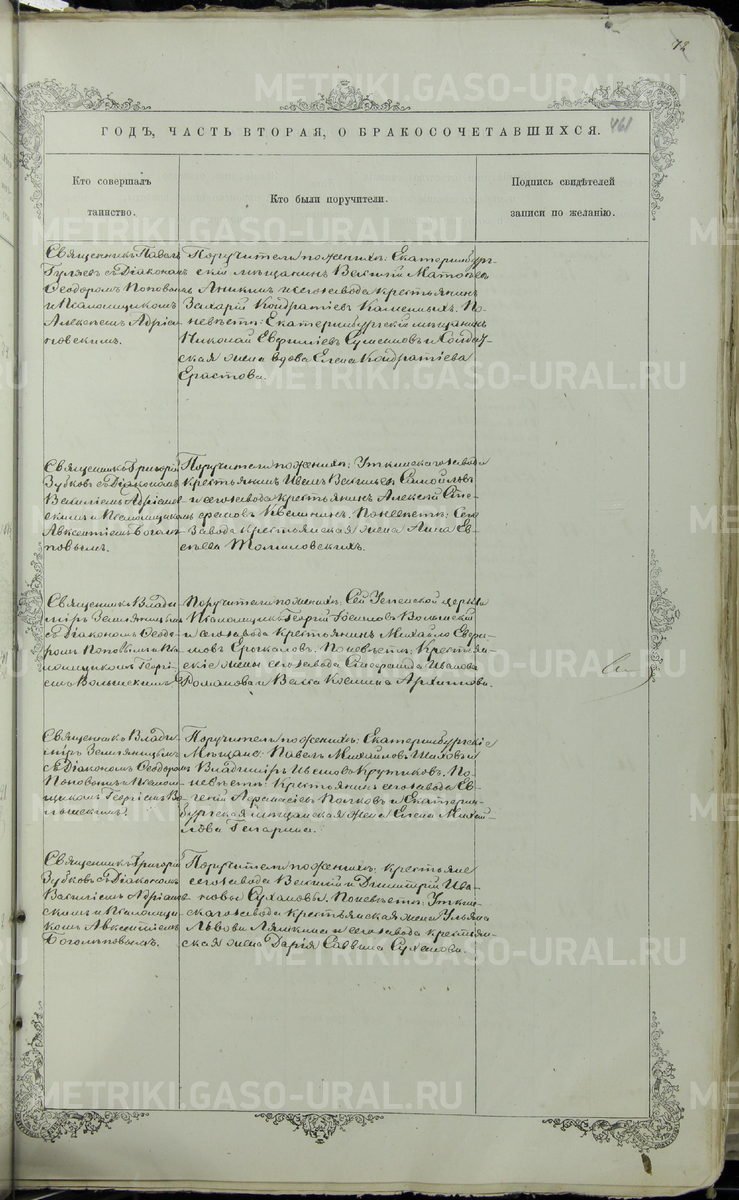 72
METRIKI.GASO-URAL.RU
461
ГОДЪ, ЧАСТЬ ВТОРАЯ, О БРАКОСОЧЕТАВШИХСЯ.
Кто совершалъ
таинство.
Кто были поручители.
Подпись свидѣтелей
записи по желанію.
Священникъ Павелъ
Гуляевъ съ Діакономъ
Ѳеодоромъ Поповымъ
и Псаломщикомъ
Алексѣемъ Адріа-
новскимъ.
Поручители по женихѣ: Екатеринбург-
скій мѣщанинъ Василій Матвѣевъ
Аникинъ и сего завода крестьянинъ
Захарій Кондратіевъ Каменныхъ. По
невѣстѣ: Екатеринбургскій мѣщанинъ
Николай Евфиміевъ и Солдат-
ская жена вдова Елена Кондратіева
Ерастова.
Священникъ Григорій
Зубковъ съ Діакономъ
Василіемъ Адріанов-
скимъ и Псаломщикомъ
Авксентіемъ Боголѣ-
повымъ.
Поручители по женихѣ: Уткинскаго завода
крестьянинъ Иванъ Васильевъ Самойловъ
и сего завода крестьянинъ Алексѣй
По невѣстѣ: Сего
завода крестьянская жена Анна Ев-
сѣева Томиловскихъ.
Священникъ Влади-
міръ Земляницынъ
съ Діакономъ Ѳеодо-
ромъ Поповымъ и Пса-
ломщикомъ Георгі-
емъ
Поручители по женихѣ: Сей церкви
Псаломщикъ Георгій
и сего завода крестьянинъ Михайло Евфи-
мовъ По невѣстѣ: Крестьян-
скіе жены сего завода Стефанида Иванова
Романова и Васса Космина Архипова.
Священникъ Влади-
міръ Земляницынъ
съ Діакономъ Ѳеодоромъ
Поповымъ и Псалом-
щикомъ Георгіемъ
Поручители по женихѣ: Екатеринбургскіе
Мѣщане: Павелъ Михайловъ и
Владиміръ Ивановъ Крутиковъ. По
невѣстѣ: Крестьянинъ сего завода Ев-
геній Афанасіевъ Полковъ и Екатерин-
бургская мѣщанская жена Елена Михай-
лова
Священникъ Григорій
Зубковъ съ Діакономъ
Василіемъ Адріанов-
скимъ и Псаломщи-
комъ Авксентіемъ
Боголѣповымъ.
Поручители по женихѣ: крестьяне
сего завода Василій и Димитрій Ива-
новы Сухановы. По невѣстѣ: Уткин-
скаго завода крестьянская жена Ульяна
Львова Ляпкина и сего завода крестьян-
ская жена Дарія Саввина Суханова.